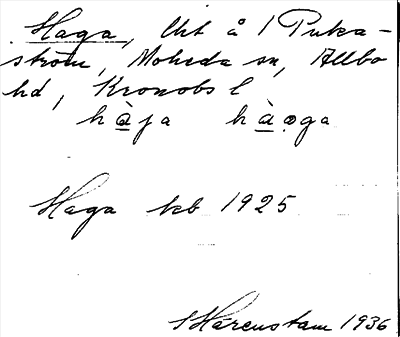 Haga, lht å 1 Puka-
ström, Moheda sn, Allbo
hd, Kronobs l
hàja hàga
Haga kb 1925
Härenstam 1936